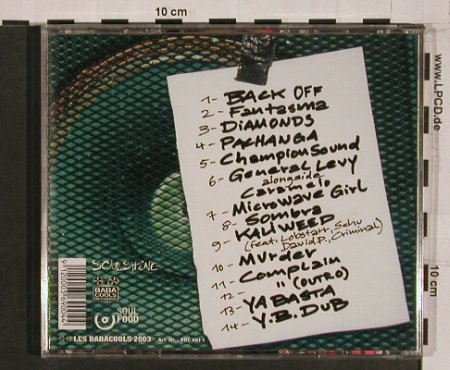 10 cm
www.LPCD.de
1- BACK OFF
2- Fantasma
3- DiAMONDS
4- PACHANGA
5- Champion Sound
6- General Levy
alongside
Caramelo
7- Microwave Girl
8- Sombra
9- KALIWEED
(feat. Lobstarr, Sehu
David P., Criminal)
10- Murder
11- Complain
12- " (OUTRO)
13- YA BASTA
14- Y.B. DUB
SOULSHINE
BABA
COOLS
SOUL
FOOD
LES BABACOOLS 2003
10 cm